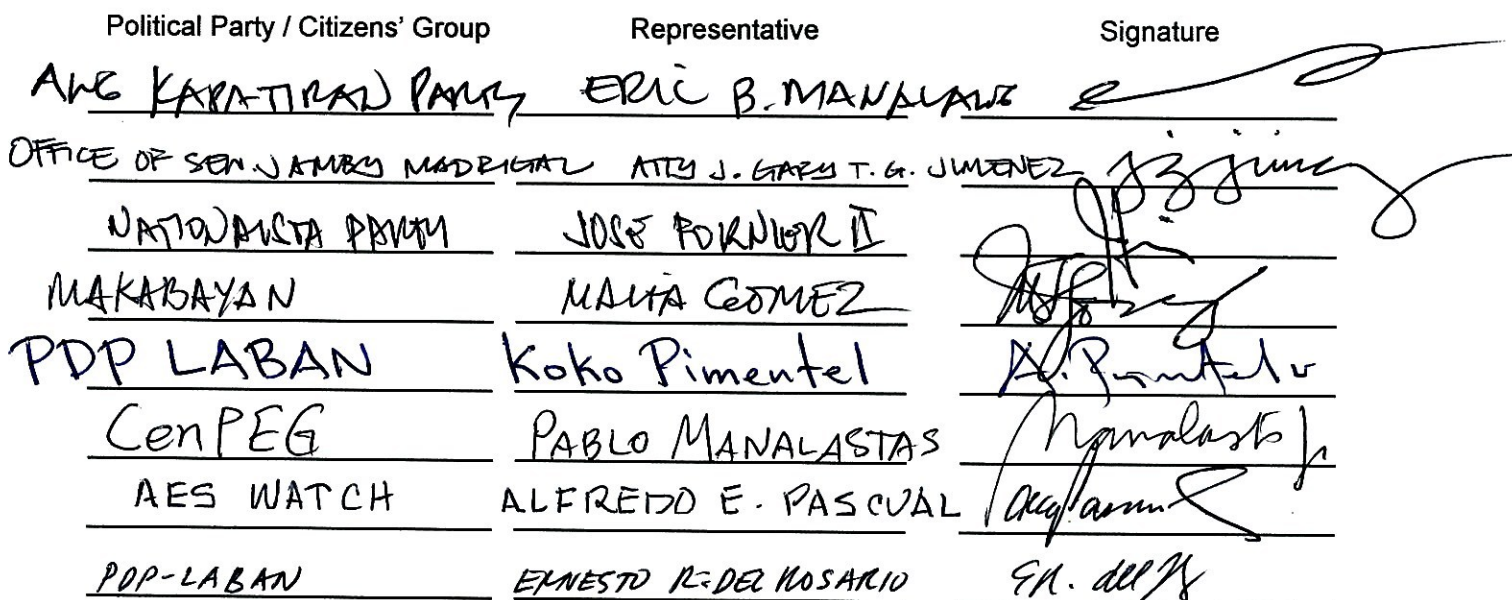 Political Party / Citizens' Group Representative Signature
ANG KAPATIRAN PARTY ERIC B. MANALANG
OFFICE OF SEN. JAMBY MADRIGAL ATTY J. GARY T. G. JIMENEZ
NATIONALISTA PARTY JOSE FORNIER II
MAKABAYAN MALIA GOMEZ
PDP LABAN Koko Pimentel A. Pimentel
CenPEG PABLO MANALASTAS Manalastas Jr
AES WATCH ALFREDO E. PASCUAL
PDP-LABAN ERNESTO R. DEL ROSARIO